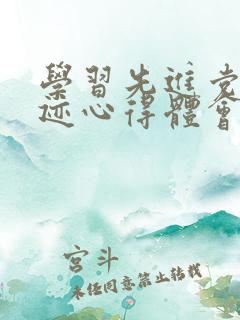 學習先進党
迹心得體會
宫斗
未经同意禁止转载